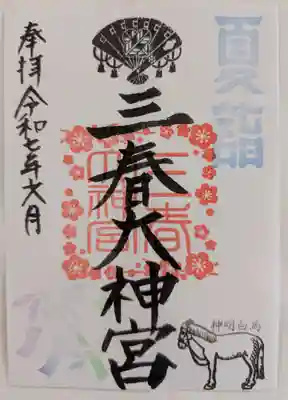 夏詣
三春大神宮
奉拝 令和七年六月
三春
大神宮
神明白馬